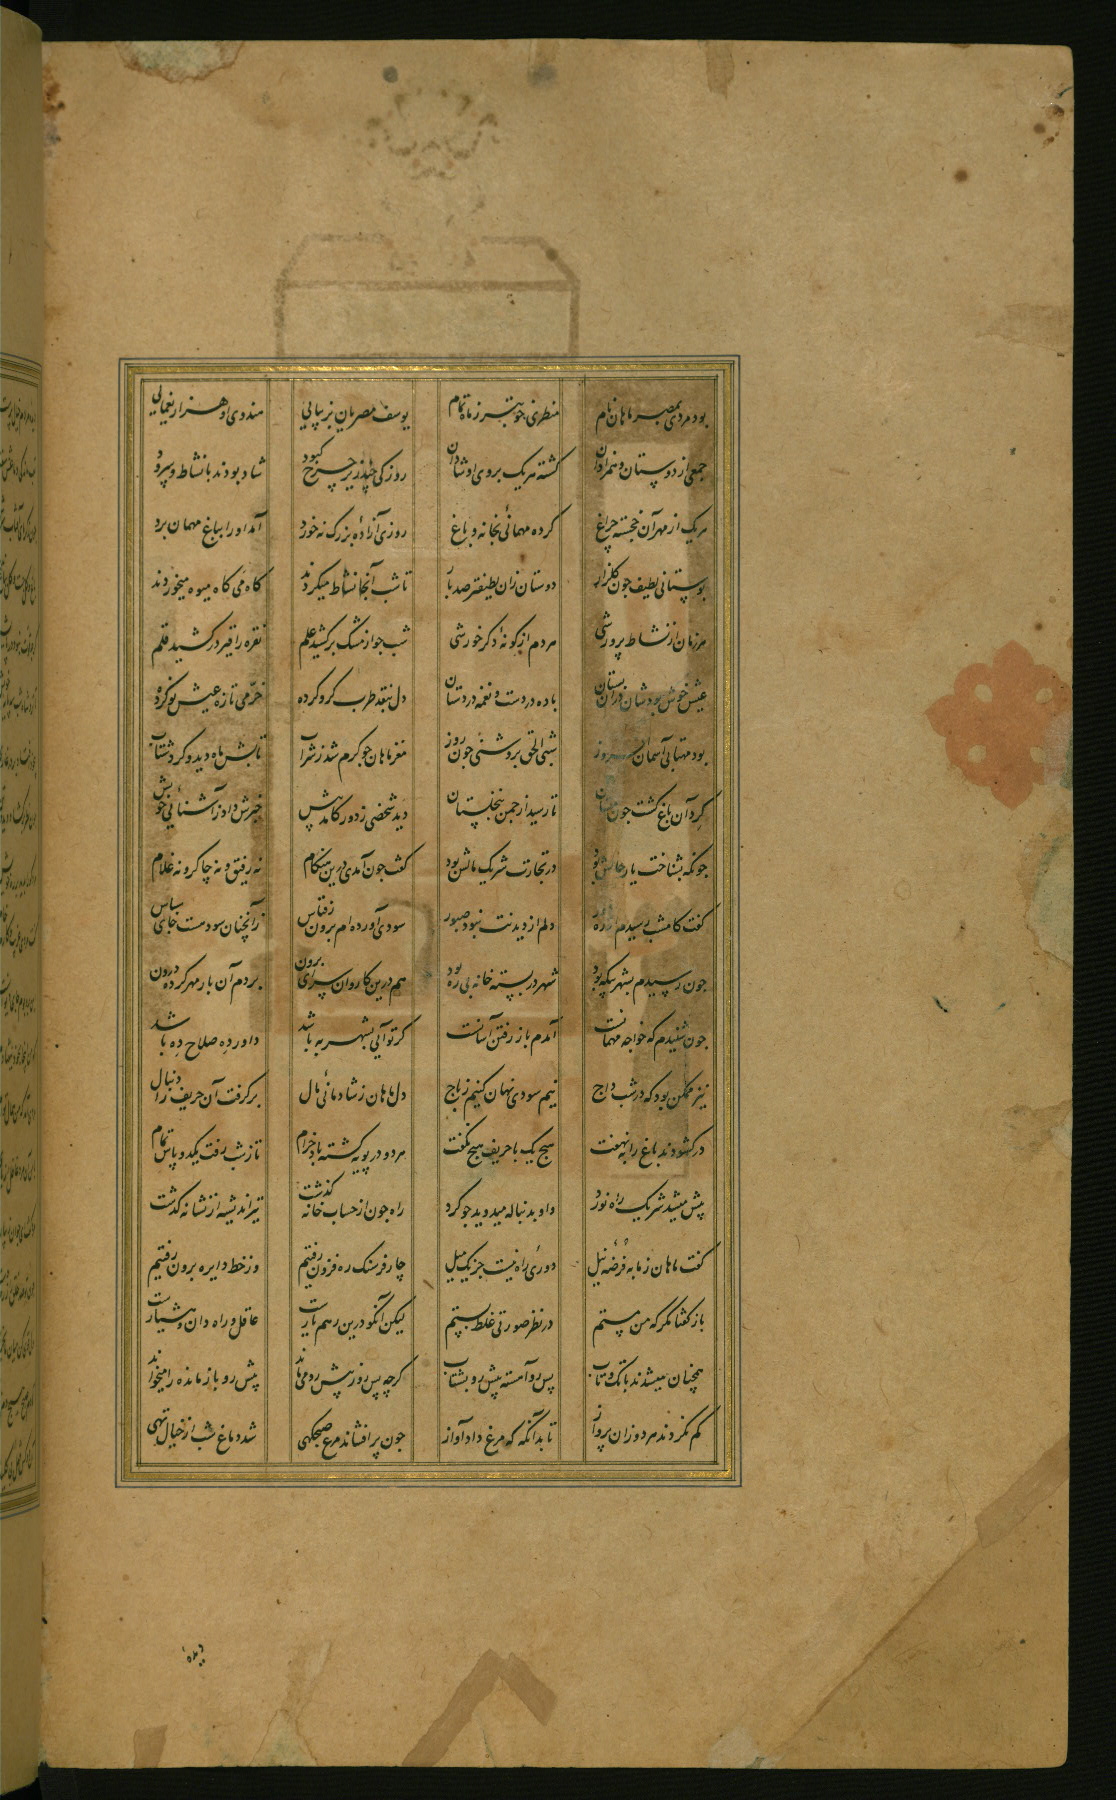 بود مردی بمصر ماهان نام منظری خوبتر ز ماه تمام یوسف مصریان بزیبایی هندوی او هزار یغمایی
جمعی از دوستان و همزادان کشته هریک بروی او شادان روزکی چند زیر چرخ کبود شاد بودند با نشاط و سرود
هریک از مهر آن خجسته چراغ کرده مهمانئی بخانه و باغ روزی آزادهٔ بزرک نه خورد آمد او را بباغ مهمان برد
بوستانی لطیف جون کلزار دوستان زان لطیفتر صد بار تا شب آنجا نشاط میکردند کاه می کاه میوه میخوردند
هر زمان از نشاط پرورشی هر دم از کونهٔ دکر خورشی شب جو از مشک برکشید علم نقره را قیر درکشید قلم
عیش خوش بودشان دران بستان باده در دست و نغمه در دستان دل بنقد طرب کرو کرده خرمی تازه عیش نو کرده
بود مهتابی آسمان افروز شبی الحق بروشنی جون روز مغز ماهان جو کرم شد ز شراب تابش ماه دید و کرد شتاب
کرد آن باغ کشت جون مستان تا رسید از جمن بنخلستان دید شخصی ز دور کامد پیش خبرش داد ز آشنائی خویش
جونکه بشناخت یار خاص بود در تجارت شریک مالش بود کفت جون آمدی درین هنکام نه رفیق و نه چاکر و نه غلام
کفت کامشب رسیدم از ره دور دلم از دیدنت نبود صبور سودی آورده ام برون ز قیاس زآنچنان سود هست جای سپاس
جون رسیدم بشهر بیکه بود شهر در بسته خانه بی ره بود هم درین کاروان سرای برون بردم آن بار مهر کرده درون
جون شنیدم که خواجه مهمانست آمدم باز رفتن آسانست کر تو آیی بشهر به باشد داور ده صلاح ده باشد
نیز ممکن بود که در شب داج نیم سودی نهان کنیم ز باج دل ماهان ز شادمانئی مال برکرفت آن حریف را دنبال
در کشودند باغ را بنهفت هیچ یک با حریف هیچ نکفت هر دو در پویه کشته باد خرام تا ز شب رفت یکدو پاس تمام
پیش میشد شریک راه نورد واو بدنباله میدوید جو کرد راه جون از حساب خانه کذشت تیر اندیشه از نشانه کذشت
کفت ماهان ز ما به فرضهٔ نیل دورئ راه نیست جز یک میل چار فرسنک ره فزون رفتیم وز خط دایره برون رفتیم
باز کفتا مکر که من مستم در نظر صورتی غلط بستم لیکن آنکو درین رهم یارست عاقل و راه دان و هشیارست
همچنان میشدند با تک و تاب پس رو آهسته پیش رو بشتاب کرچه پس رو ز پیش رو می ماند پیش رو باز مانده را میخواند
کم نکردند هر دو زان پرواز تا بدآنکه که مرغ داد آواز جون پر افشاند مرغ صبحکهی شد دماغ شب از خیال تهی
دیده